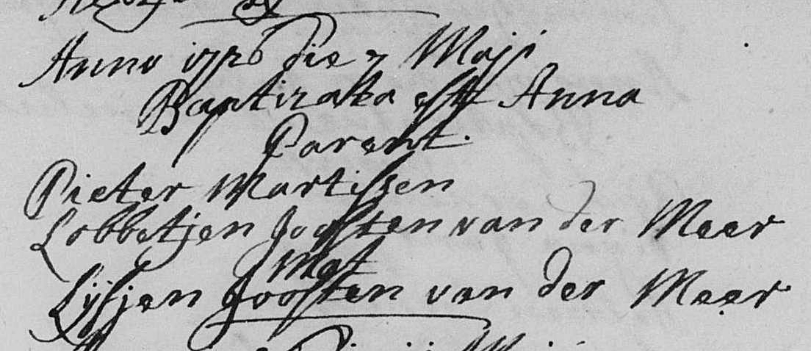 Anno 1726 die 7 Maji
Baptizata est Anna
Parent.
Pieter Martissen
Lobbetjen Joosten van der Meer
Mat
Lijsjen Joosten van der Meer